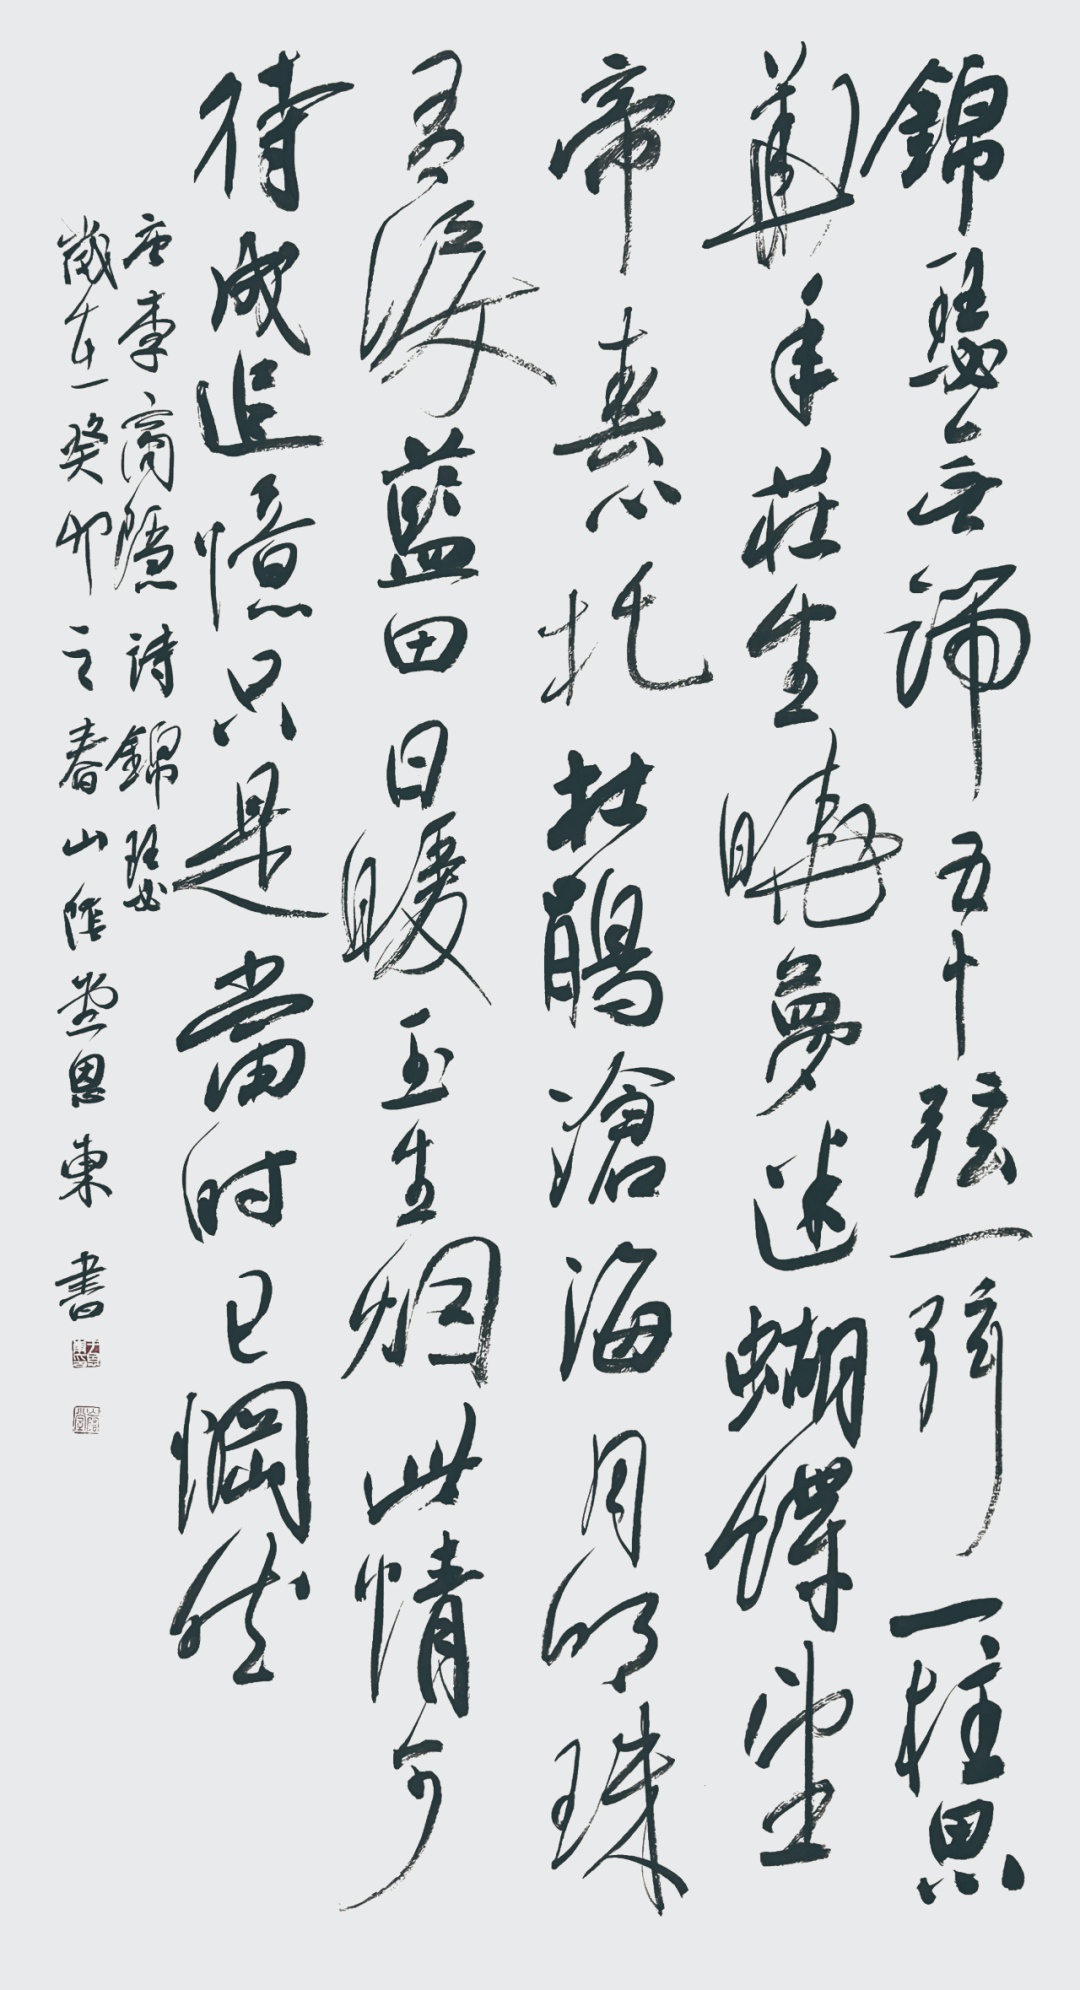 錦瑟无端五十弦一弦一柱思
華年莊生曉夢迷蝴蝶望
帝春心托杜鵑滄海月明珠
有淚藍田日暖玉生烟此情可
待成追憶只是當时已惘然
唐李商隱詩錦瑟
歲在癸卯之春山陰堂恩東書